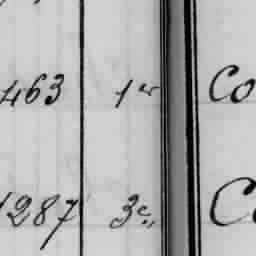 463 1er Co
1287 3e, C